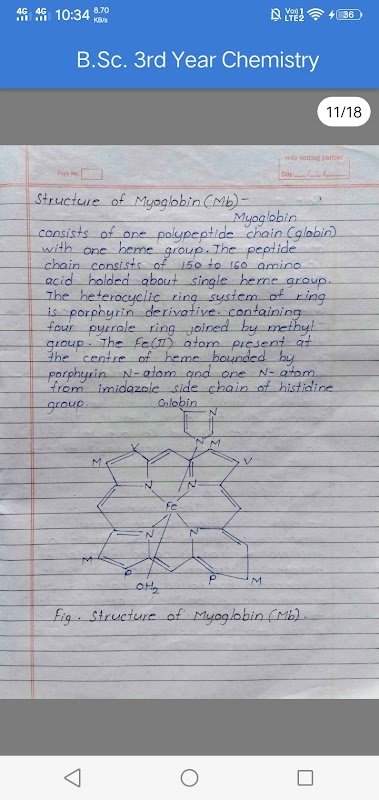 4G 4G 10:34 8.70 KB/s Vo) 1 LTE2 36
B.Sc. 3rd Year Chemistry
11/18
your writing partner
Page No.
Date / /
Structure of Myoglobin (Mb) -
Myoglobin
consists of one polypeptide chain (globin)
with one heme group. The peptide
chain consists of 150 to 160 amino
acid holded about single heme group.
The heterocyclic ring system of ring
is porphyrin derivative. containing
four pyrrole ring joined by methyl
group. The Fe(II) atom present at
the centre of heme bounded by
porphyrin N-atom and one N-atom
from imidazole side chain of histidine
group.
Globin
N
N
V
M
M
V
N
N
Fe
N
N
M
P
P
M
OH2
Fig. Structure of Myoglobin (Mb).